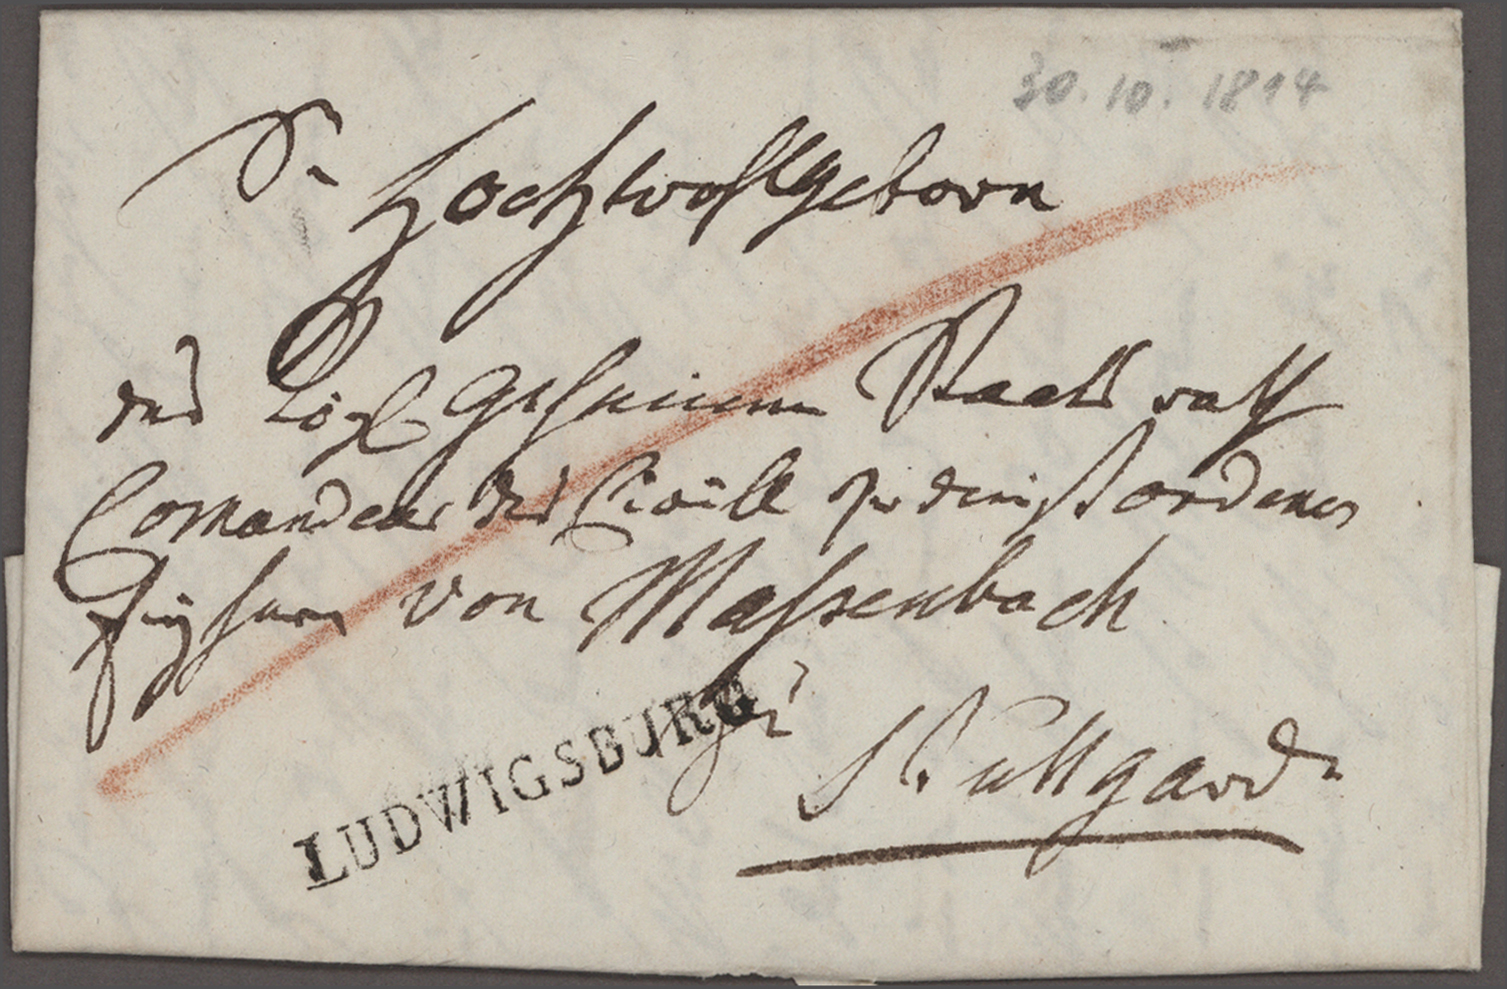 30.10.1814
Sr Hochwohlgeborn
des Kögl Geheimen Staatsrath
Comandeur des Civill Verdienst ordenes
Freyherrn von Massenbach
zu
Stuttgard
LUDWIGSBURG